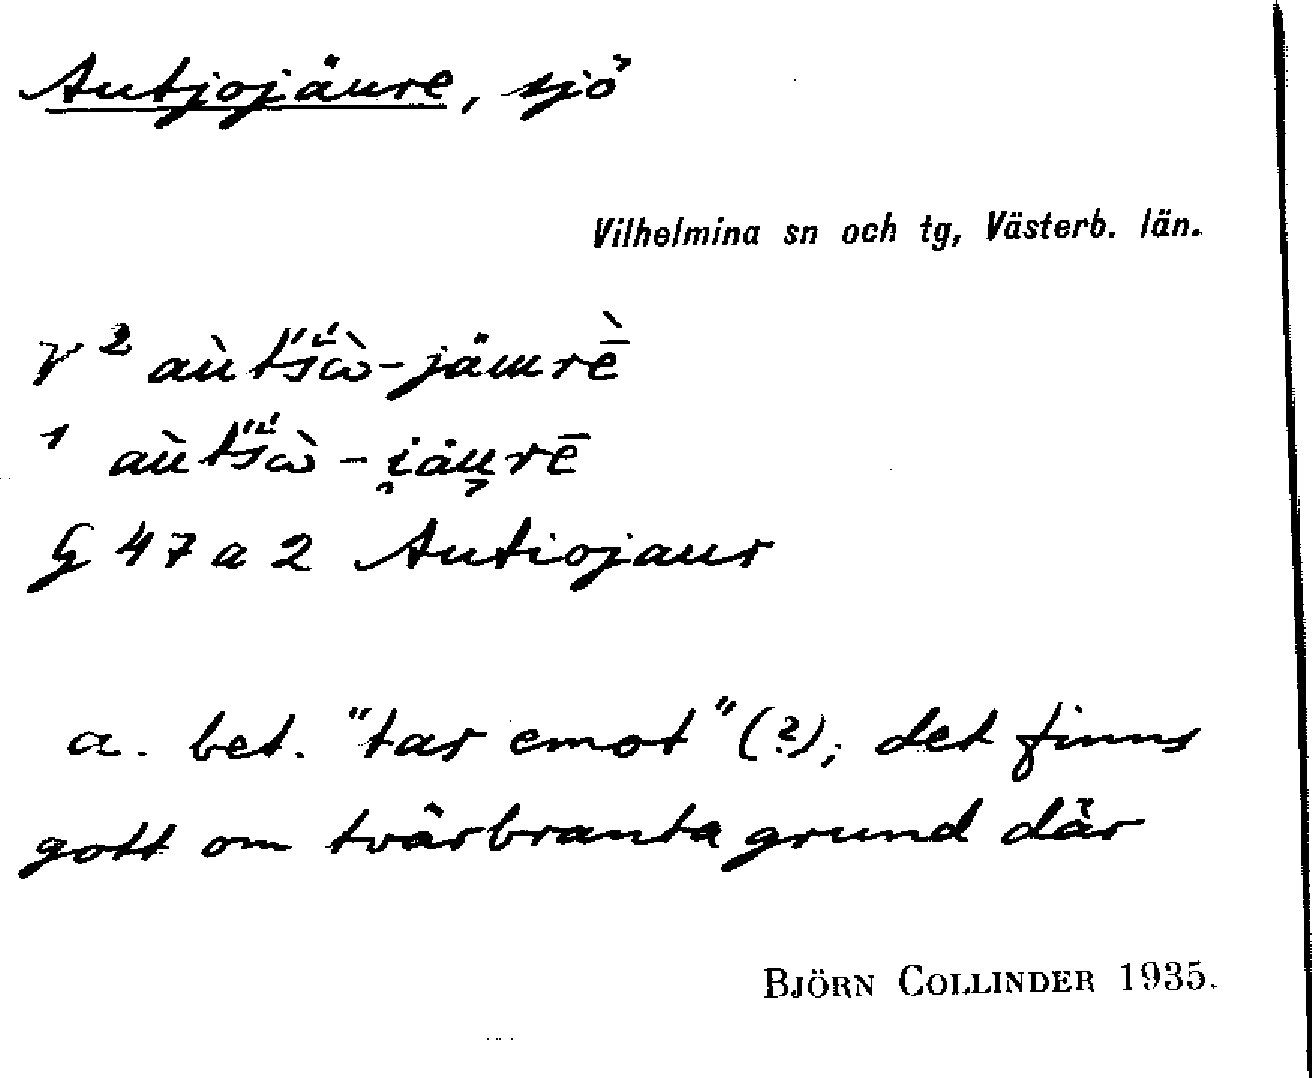 Autjojäure, sjö
Vilhelmina sn och tg, Västerb. län.
V² aùtšὼ-jäurḕ
¹ aùtšὼ-i̯äu̯rē
G 47 a 2 Autiojaur
a. bet. "tar emot" (?); det finns
gott om tvärbranta grund där
BJÖRN COLLINDER 1935.